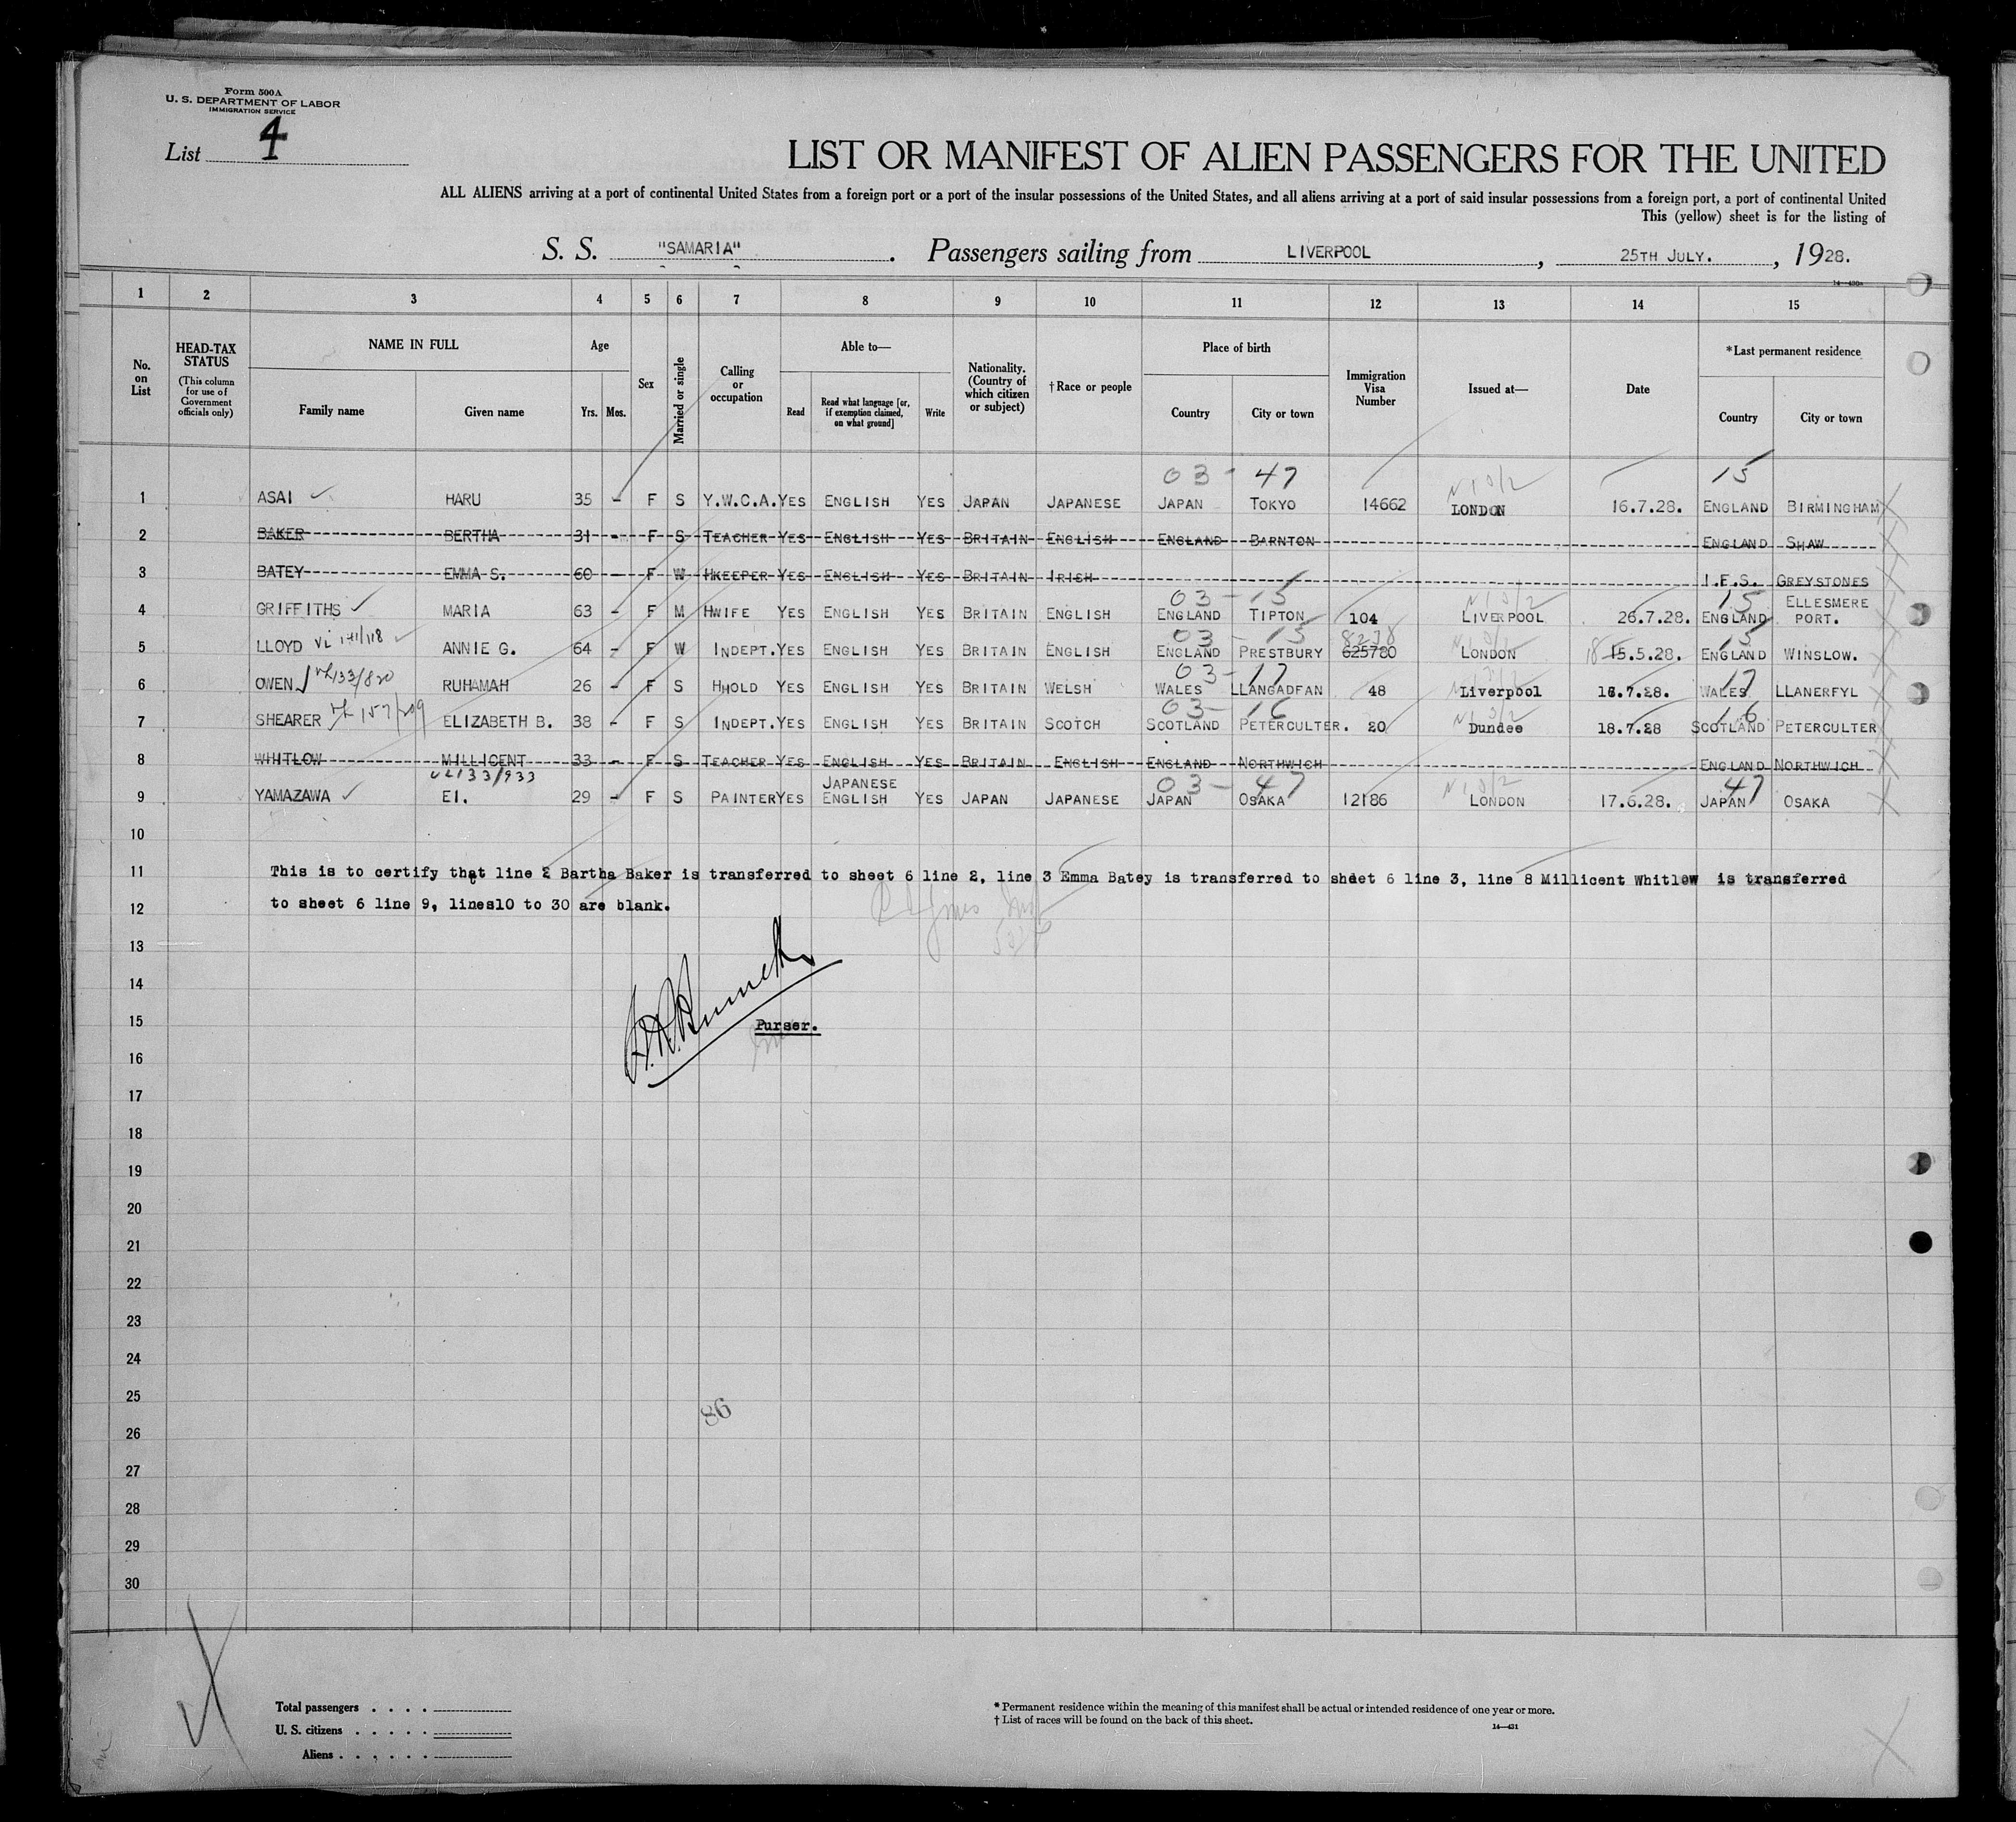 Form 500A
U. S. DEPARTMENT OF LABOR
IMMIGRATION SERVICE
List 4
LIST OR MANIFEST OF ALIEN PASSENGERS FOR THE UNITED
ALL ALIENS arriving at a port of continental United States from a foreign port or a port of the insular possessions of the United States, and all aliens arriving at a port of said insular possessions from a foreign port, a port of continental United
This (yellow) sheet is for the listing of
S. S. "SAMARIA". Passengers sailing from LIVERPOOL, 25TH JULY., 1928.
14—430a
1 2 3 4 5 6 7 8 9 10 11 12 13 14 15
No. on List
HEAD-TAX STATUS (This column for use of Government officials only)
NAME IN FULL
Family name Given name
Age
Yrs. Mos.
Sex
Married or single
Calling or occupation
Able to—
Read Read what language [or, if exemption claimed, on what ground] Write
Nationality. (Country of which citizen or subject)
†Race or people
Place of birth
Country City or town
Immigration Visa Number
Issued at—
Date
*Last permanent residence
Country City or town
03 - 47 15
1 ASAI HARU 35 - F S Y.W.C.A. YES ENGLISH YES JAPAN JAPANESE JAPAN TOKYO 14662 LONDON 16.7.28. ENGLAND BIRMINGHAM
2 BAKER BERTHA 31 - F S TEACHER YES ENGLISH YES BRITAIN ENGLISH ENGLAND BARNTON ENGLAND SHAW
3 BATEY EMMA S. 60 - F W HKEEPER YES ENGLISH YES BRITAIN IRISH I.F.S. GREYSTONES
03 - 15 15
4 GRIFFITHS MARIA 63 - F M HWIFE YES ENGLISH YES BRITAIN ENGLISH ENGLAND TIPTON 104 LIVERPOOL 26.7.28. ENGLAND ELLESMERE PORT.
03 - 15 8278 15
5 LLOYD ANNIE G. 64 - F W INDEPT. YES ENGLISH YES BRITAIN ENGLISH ENGLAND PRESTBURY 625780 LONDON 18 15.5.28. ENGLAND WINSLOW.
03 - 17 17
6 OWEN 133/820 RUHAMAH 26 - F S HHOLD YES ENGLISH YES BRITAIN WELSH WALES LLANGADFAN 48 Liverpool 18.7.28. WALES LLANERFYL
03 - 16 16
7 SHEARER 157/209 ELIZABETH B. 38 - F S INDEPT. YES ENGLISH YES BRITAIN SCOTCH SCOTLAND PETERCULTER. 20 Dundee 18.7.28 SCOTLAND PETERCULTER
8 WHITLOW MILLICENT 33 - F S TEACHER YES ENGLISH YES BRITAIN ENGLISH ENGLAND NORTHWICH ENGLAND NORTHWICH
133/933 JAPANESE 03 - 47 47
9 YAMAZAWA EI. 29 - F S PAINTER YES ENGLISH YES JAPAN JAPANESE JAPAN OSAKA 12186 LONDON 17.6.28. JAPAN OSAKA
10
11 This is to certify that line 2 Bartha Baker is transferred to sheet 6 line 2, line 3 Emma Batey is transferred to sheet 6 line 3, line 8 Millicent Whitlow is transferred
12 to sheet 6 line 9, lines10 to 30 are blank.
13
14
15 Purser.
16
17
18
19
20
21
22
23
24
25
86
26
27
28
29
30
Total passengers . . . .
U. S. citizens . . . . .
Aliens . . . . . .
* Permanent residence within the meaning of this manifest shall be actual or intended residence of one year or more.
† List of races will be found on the back of this sheet.
14—431